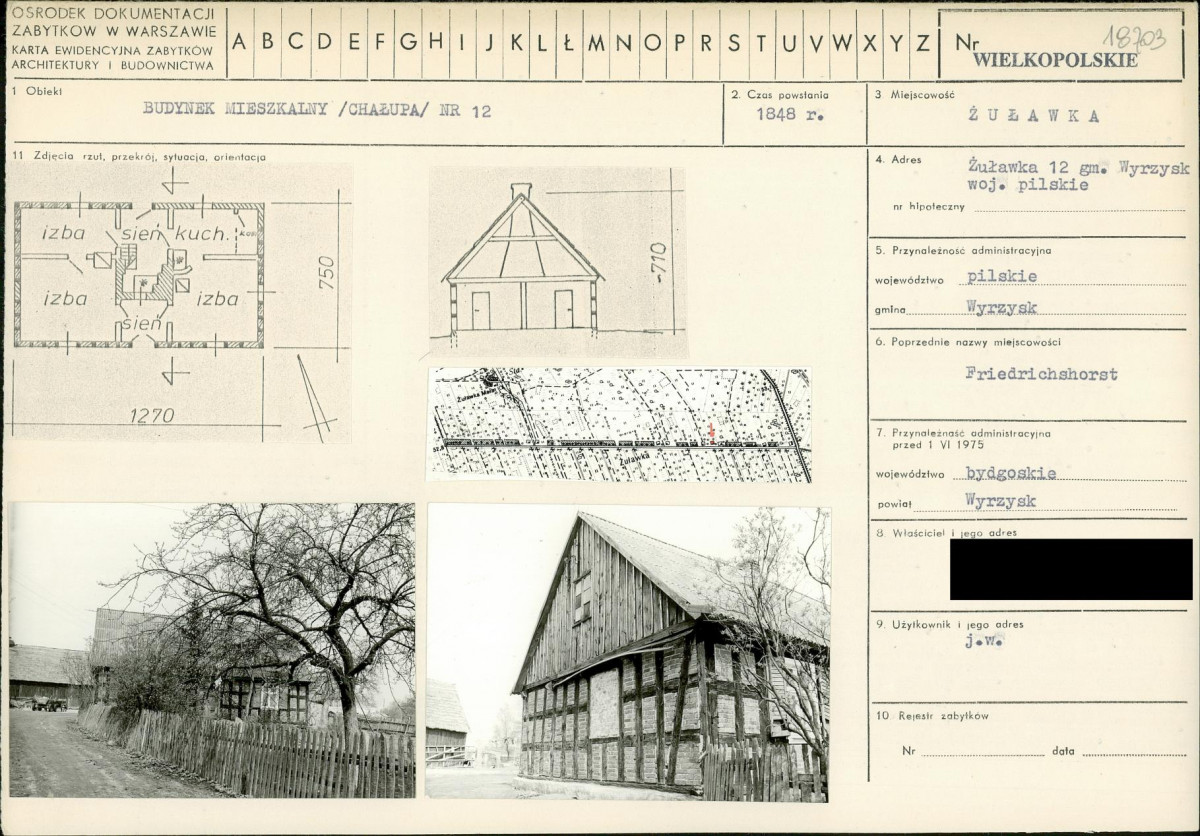 OŚRODEK DOKUMENTACJI
ZABYTKÓW W WARSZAWIE
KARTA EWIDENCYJNA ZABYTKÓW
ARCHITEKTURY I BUDOWNICTWA
A B C D E F G H I J K L Ł M N O P R S T U V W X Y Z
Nr 18703
WIELKOPOLSKIE
1 Obiekt
BUDYNEK MIESZKALNY /CHAŁUPA/ NR 12
2. Czas powstania
1848 r.
3 Miejscowość
ŻUŁAWKA
11 Zdjęcia rzut, przekrój, sytuacja, orientacja
izba
sień
kuch.
izba
izba
sień
750
1270
710
Żuławka
4. Adres
Żuławka 12 gm. Wyrzysk
woj. pilskie
nr hipoteczny
5. Przynależność administracyjna
województwo pilskie
gmina Wyrzysk
6. Poprzednie nazwy miejscowości
Friedrichshorst
7. Przynależność administracyjna
przed 1 VI 1975
województwo bydgoskie
powiat Wyrzysk
8. Właściciel i jego adres
9. Użytkownik i jego adres
j.w.
10. Rejestr zabytków
Nr data